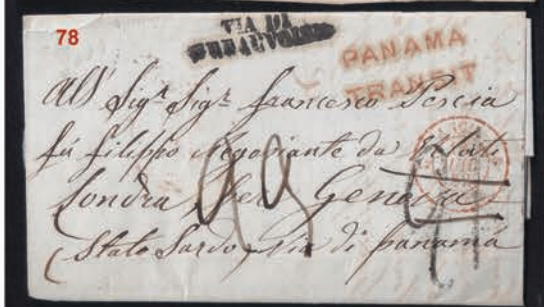 78
VIA DI
PANAMA
TRANSIT
All' Sigr. Sigr. Francesco
fu Filippo Negoziante da
Londra, per Genova
Stato Sardo, via di panamá